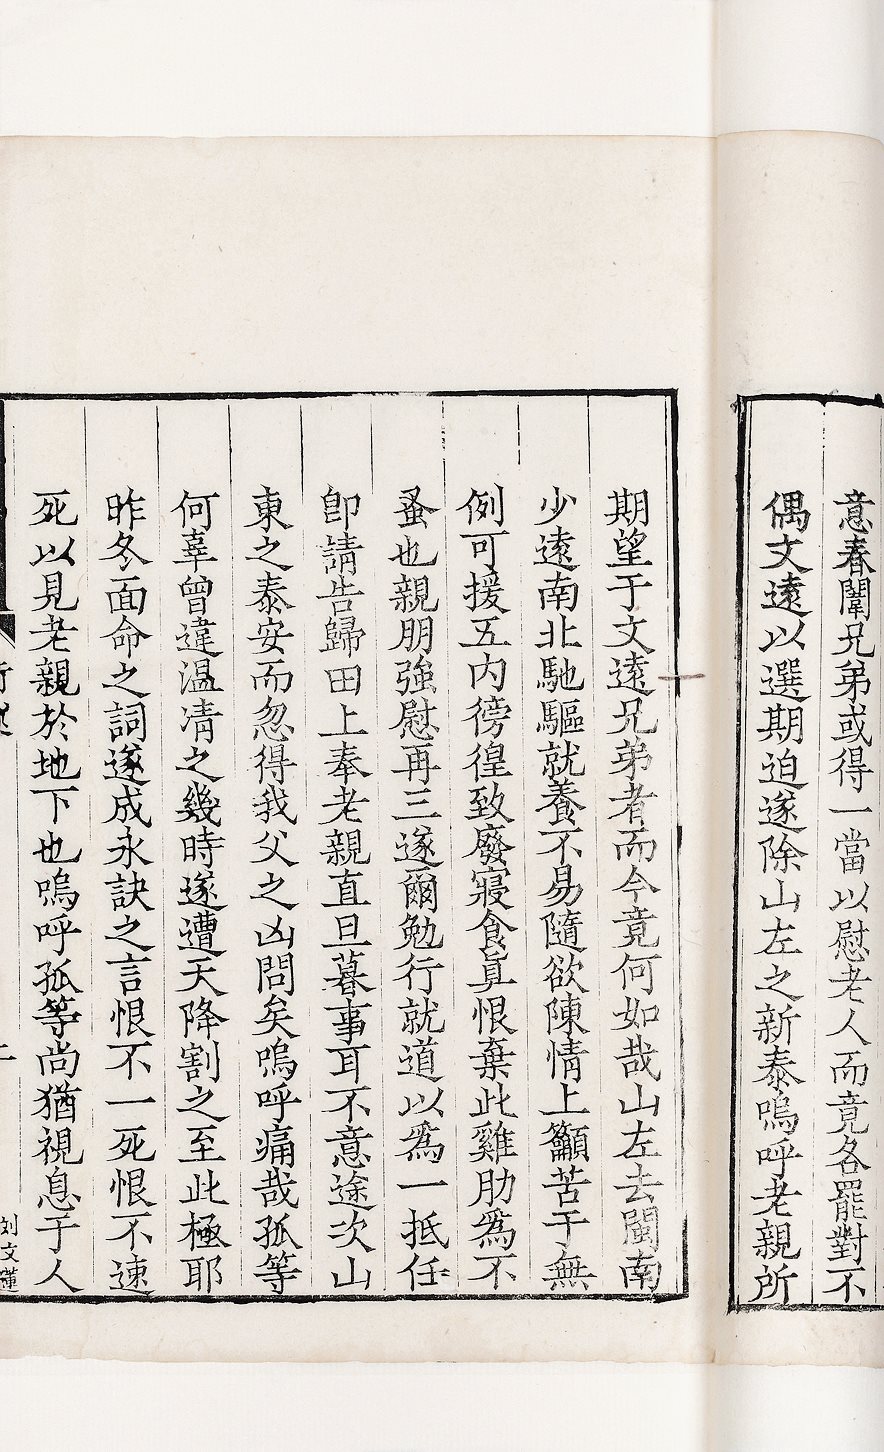 意春闈兄弟或得一當以慰老人而竟各罷對不
偶文逺以選期迫遂除山左之新泰嗚呼老親所
期望于文逺兄弟者而今竟何如哉山左去閩南
少逺南北馳驅就養不易隨欲陳情上籲苦于無
例可援五内徬徨致廢寢食眞恨棄此雞肋爲不
蚤也親朋強慰再三遂爾勉行就道以爲一抵任
卽請告歸田上奉老親直旦暮事耳不意途次山
東之泰安而忽得我父之凶問矣嗚呼痛哉孤等
何辜曾違温凊之幾時遂遭天降割之至此極耶
昨冬面命之詞遂成永訣之言恨不一死恨不速
死以見老親於地下也嗚呼孤等尚猶視息于人